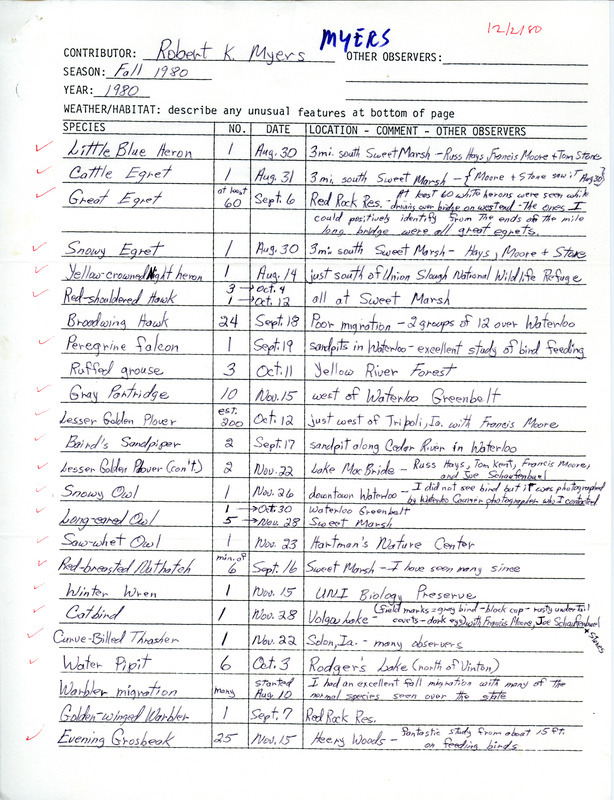 12/2/80
MYERS
CONTRIBUTOR: Robert K. Myers OTHER OBSERVERS:
SEASON: Fall 1980
YEAR: 1980
WEATHER/HABITAT: describe any unusual features at bottom of page
SPECIES NO. DATE LOCATION - COMMENT - OTHER OBSERVERS
Little Blue Heron 1 Aug. 30 3mi. south Sweet Marsh - Russ Hays, Francis Moore + Tom Stone
Cattle Egret 1 Aug. 31 3mi. south Sweet Marsh - {Moore + Stone saw it Aug 30}
Great Egret at least 60 Sept. 6 Red Rock Res. - At least 60 white herons were seen while
driving over bridge on west end - The ones I
could positively identify from the ends of the mile
long bridge were all great egrets.
Snowy Egret 1 Aug. 30 3mi. south Sweet Marsh - Hays, Moore + Stone
Yellow-crowned Night heron 1 Aug. 14 just south of Union Slough National Wildlife Refuge
Red-shouldered Hawk 3 → Oct. 4
1 → Oct. 12 all at Sweet Marsh
Broadwing Hawk 24 Sept. 18 Poor migration - 2 groups of 12 over Waterloo
Peregrine falcon 1 Sept. 19 sandpits in Waterloo - excellent study of bird feeding
Ruffed grouse 3 Oct. 11 Yellow River Forest
Gray Partridge 10 Nov. 15 west of Waterloo Greenbelt
Lesser Golden Plover est. 200 Oct. 12 just west of Tripoli, Ia. with Francis Moore
Baird's Sandpiper 2 Sept. 17 sandpit along Cedar River in Waterloo
Lesser Golden Plover (con't.) 2 Nov. 22 Lake MacBride - Russ Hays, Tom Kent, Francis Moore,
and Joe Schaufenbuel
Snowy Owl 1 Nov. 26 downtown Waterloo - I did not see bird but it was photographed
by Waterloo Courier photographer who I contacted
Long-eared Owl 1 → Oct. 30 Waterloo Greenbelt
5 → Nov. 28 Sweet Marsh
Saw-whet Owl 1 Nov. 23 Hartman's Nature Center
Red-breasted Nuthatch min. of 6 Sept. 16 Sweet Marsh - I have seen many since
Winter Wren 1 Nov. 15 UNI Biology Preserve
Catbird 1 Nov. 28 Volga Lake - (field marks = grey bird - black cap - rusty under tail
coverts - dark eye) with Francis Moore, Joe Schaufenbuel
+ Stones
Curve-Billed Thrasher 1 Nov. 22 Solon, Ia. - many observers
Water Pipit 6 Oct. 3 Rodgers Lake (north of Vinton)
Warbler migration many started Aug. 10 I had an excellent fall migration with many of the
normal species seen over the state
Golden-winged Warbler 1 Sept. 7 Red Rock Res.
Evening Grosbeak 25 Nov. 15 Heery Woods - Fantastic study from about 15 ft.
on feeding birds.